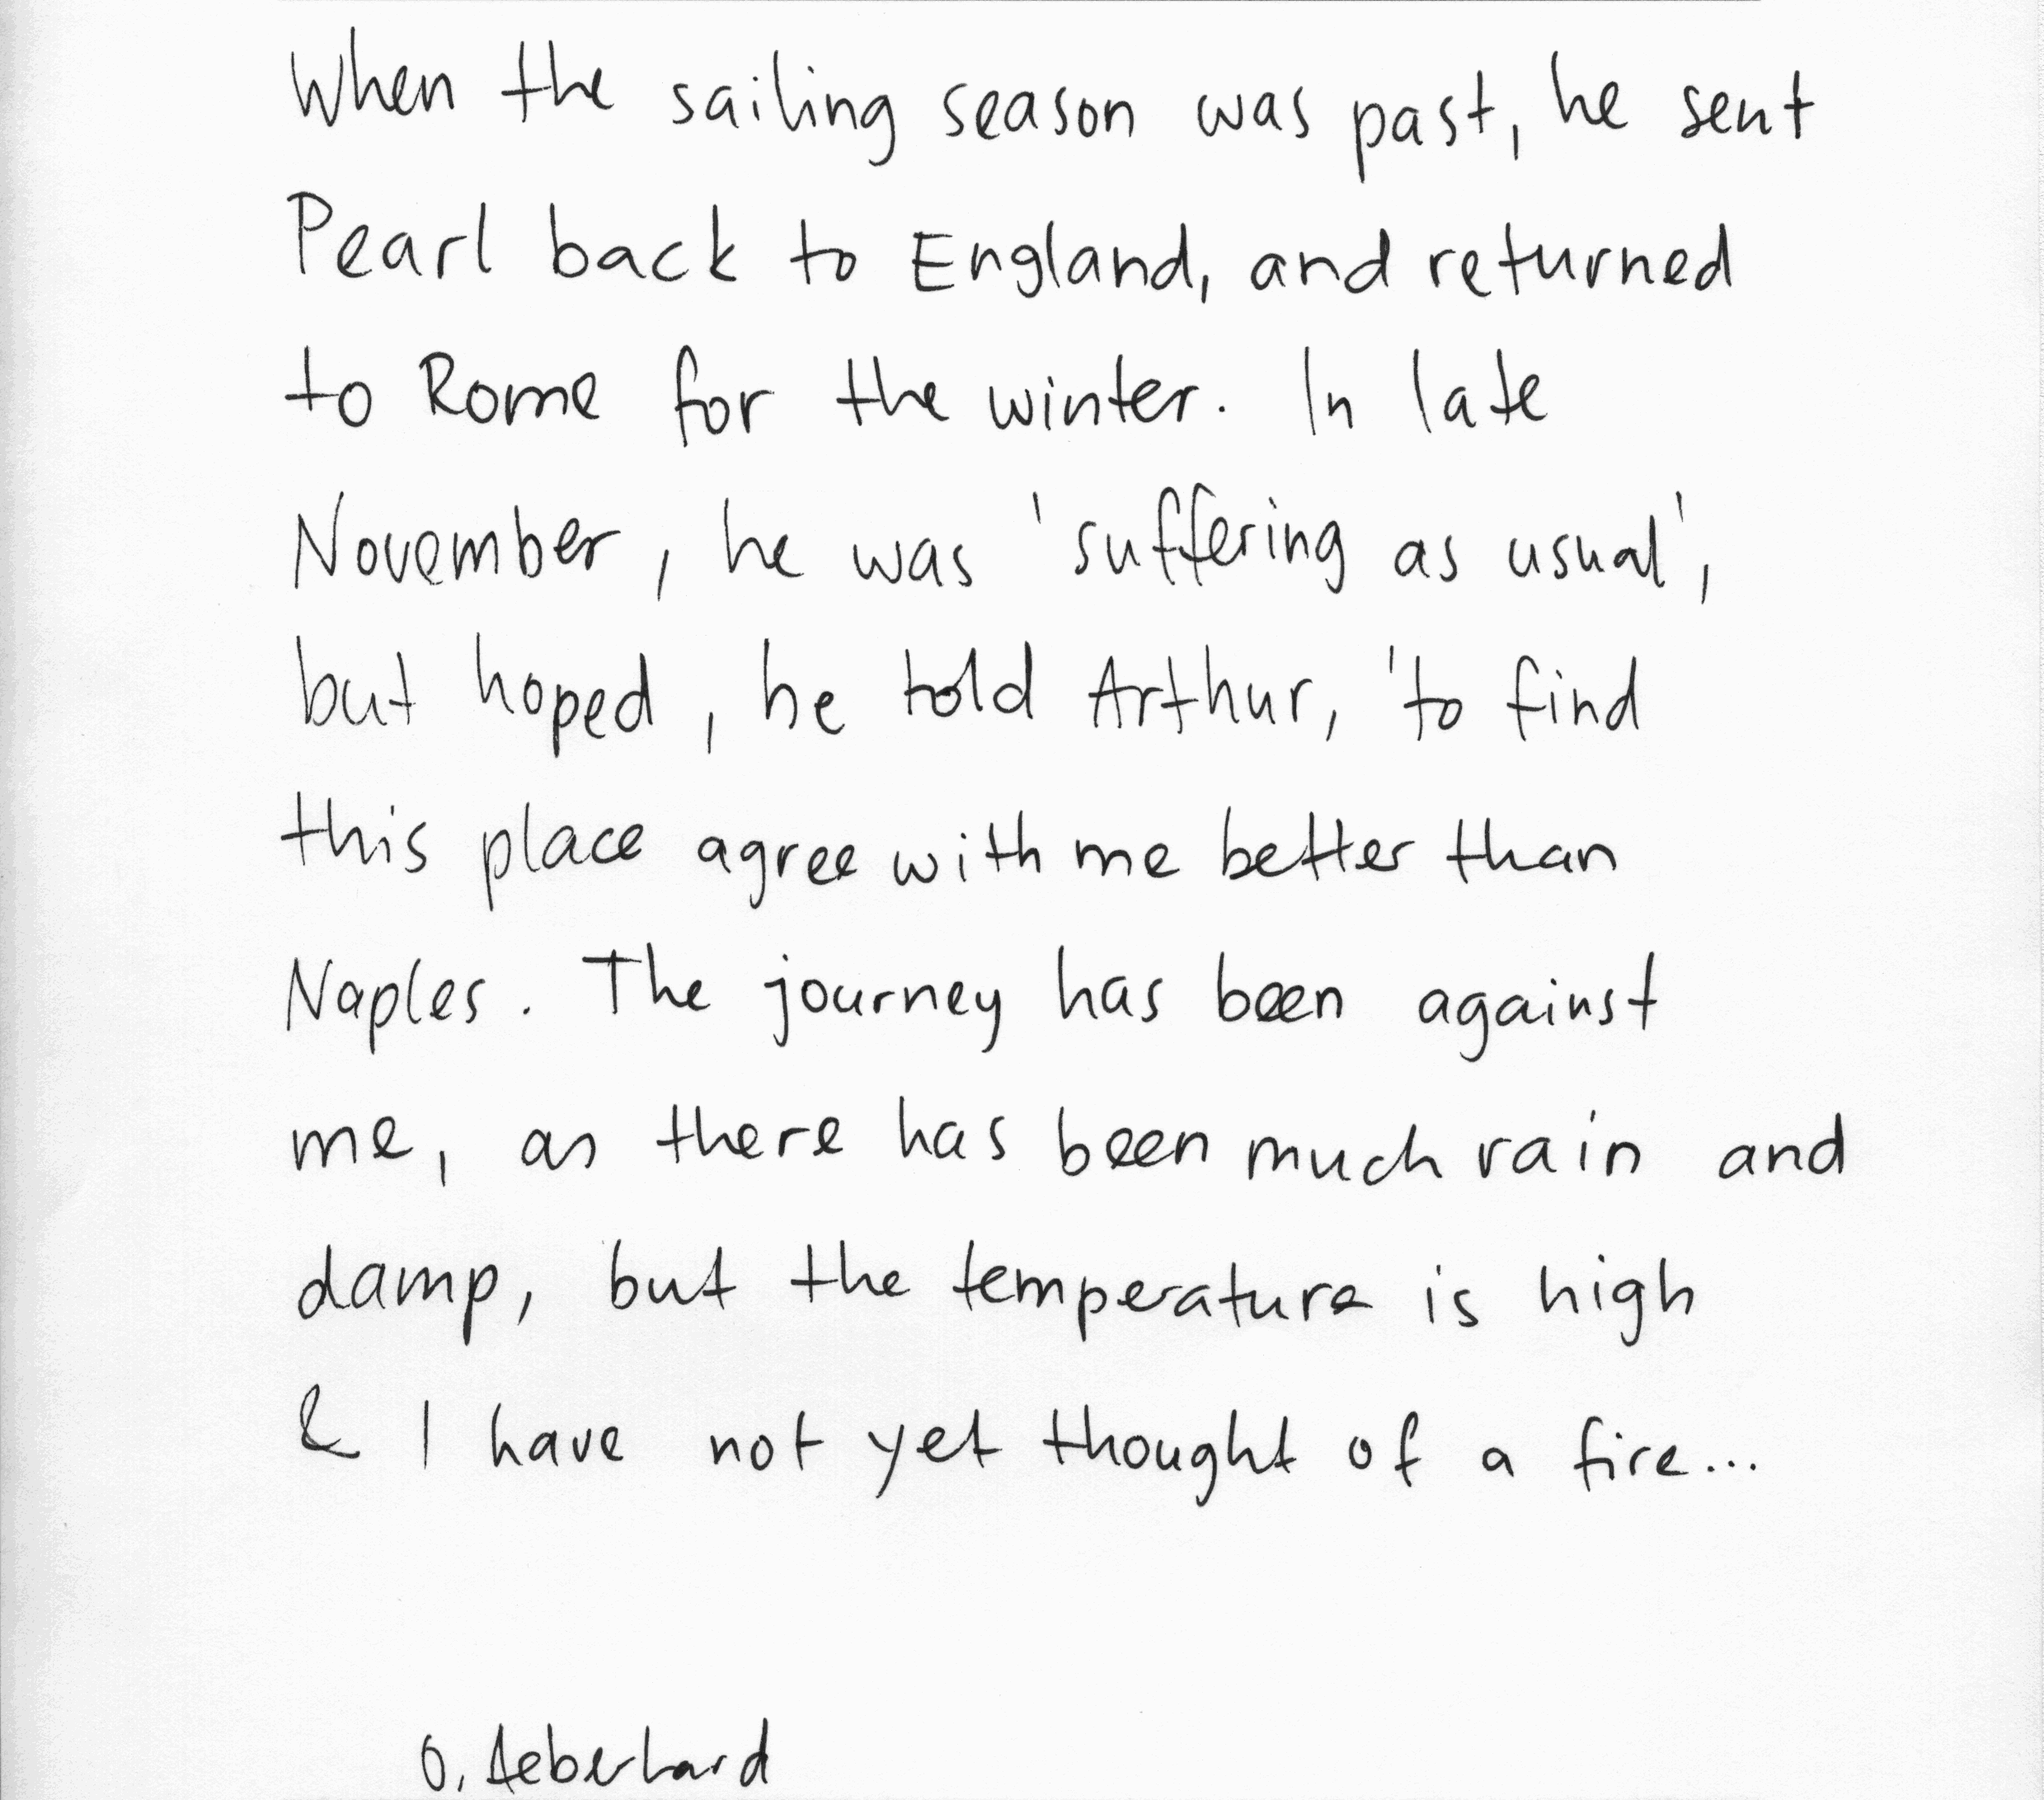 When the sailing season was past, he sent
Pearl back to England, and returned
to Rome for the winter. In late
November, he was 'suffering as usual',
but hoped, he told Arthur, 'to find
this place agree with me better than
Naples. The journey has been against
me, as there has been much rain and
damp, but the temperature is high
& I have not yet thought of a fire...
O. Aeberhard